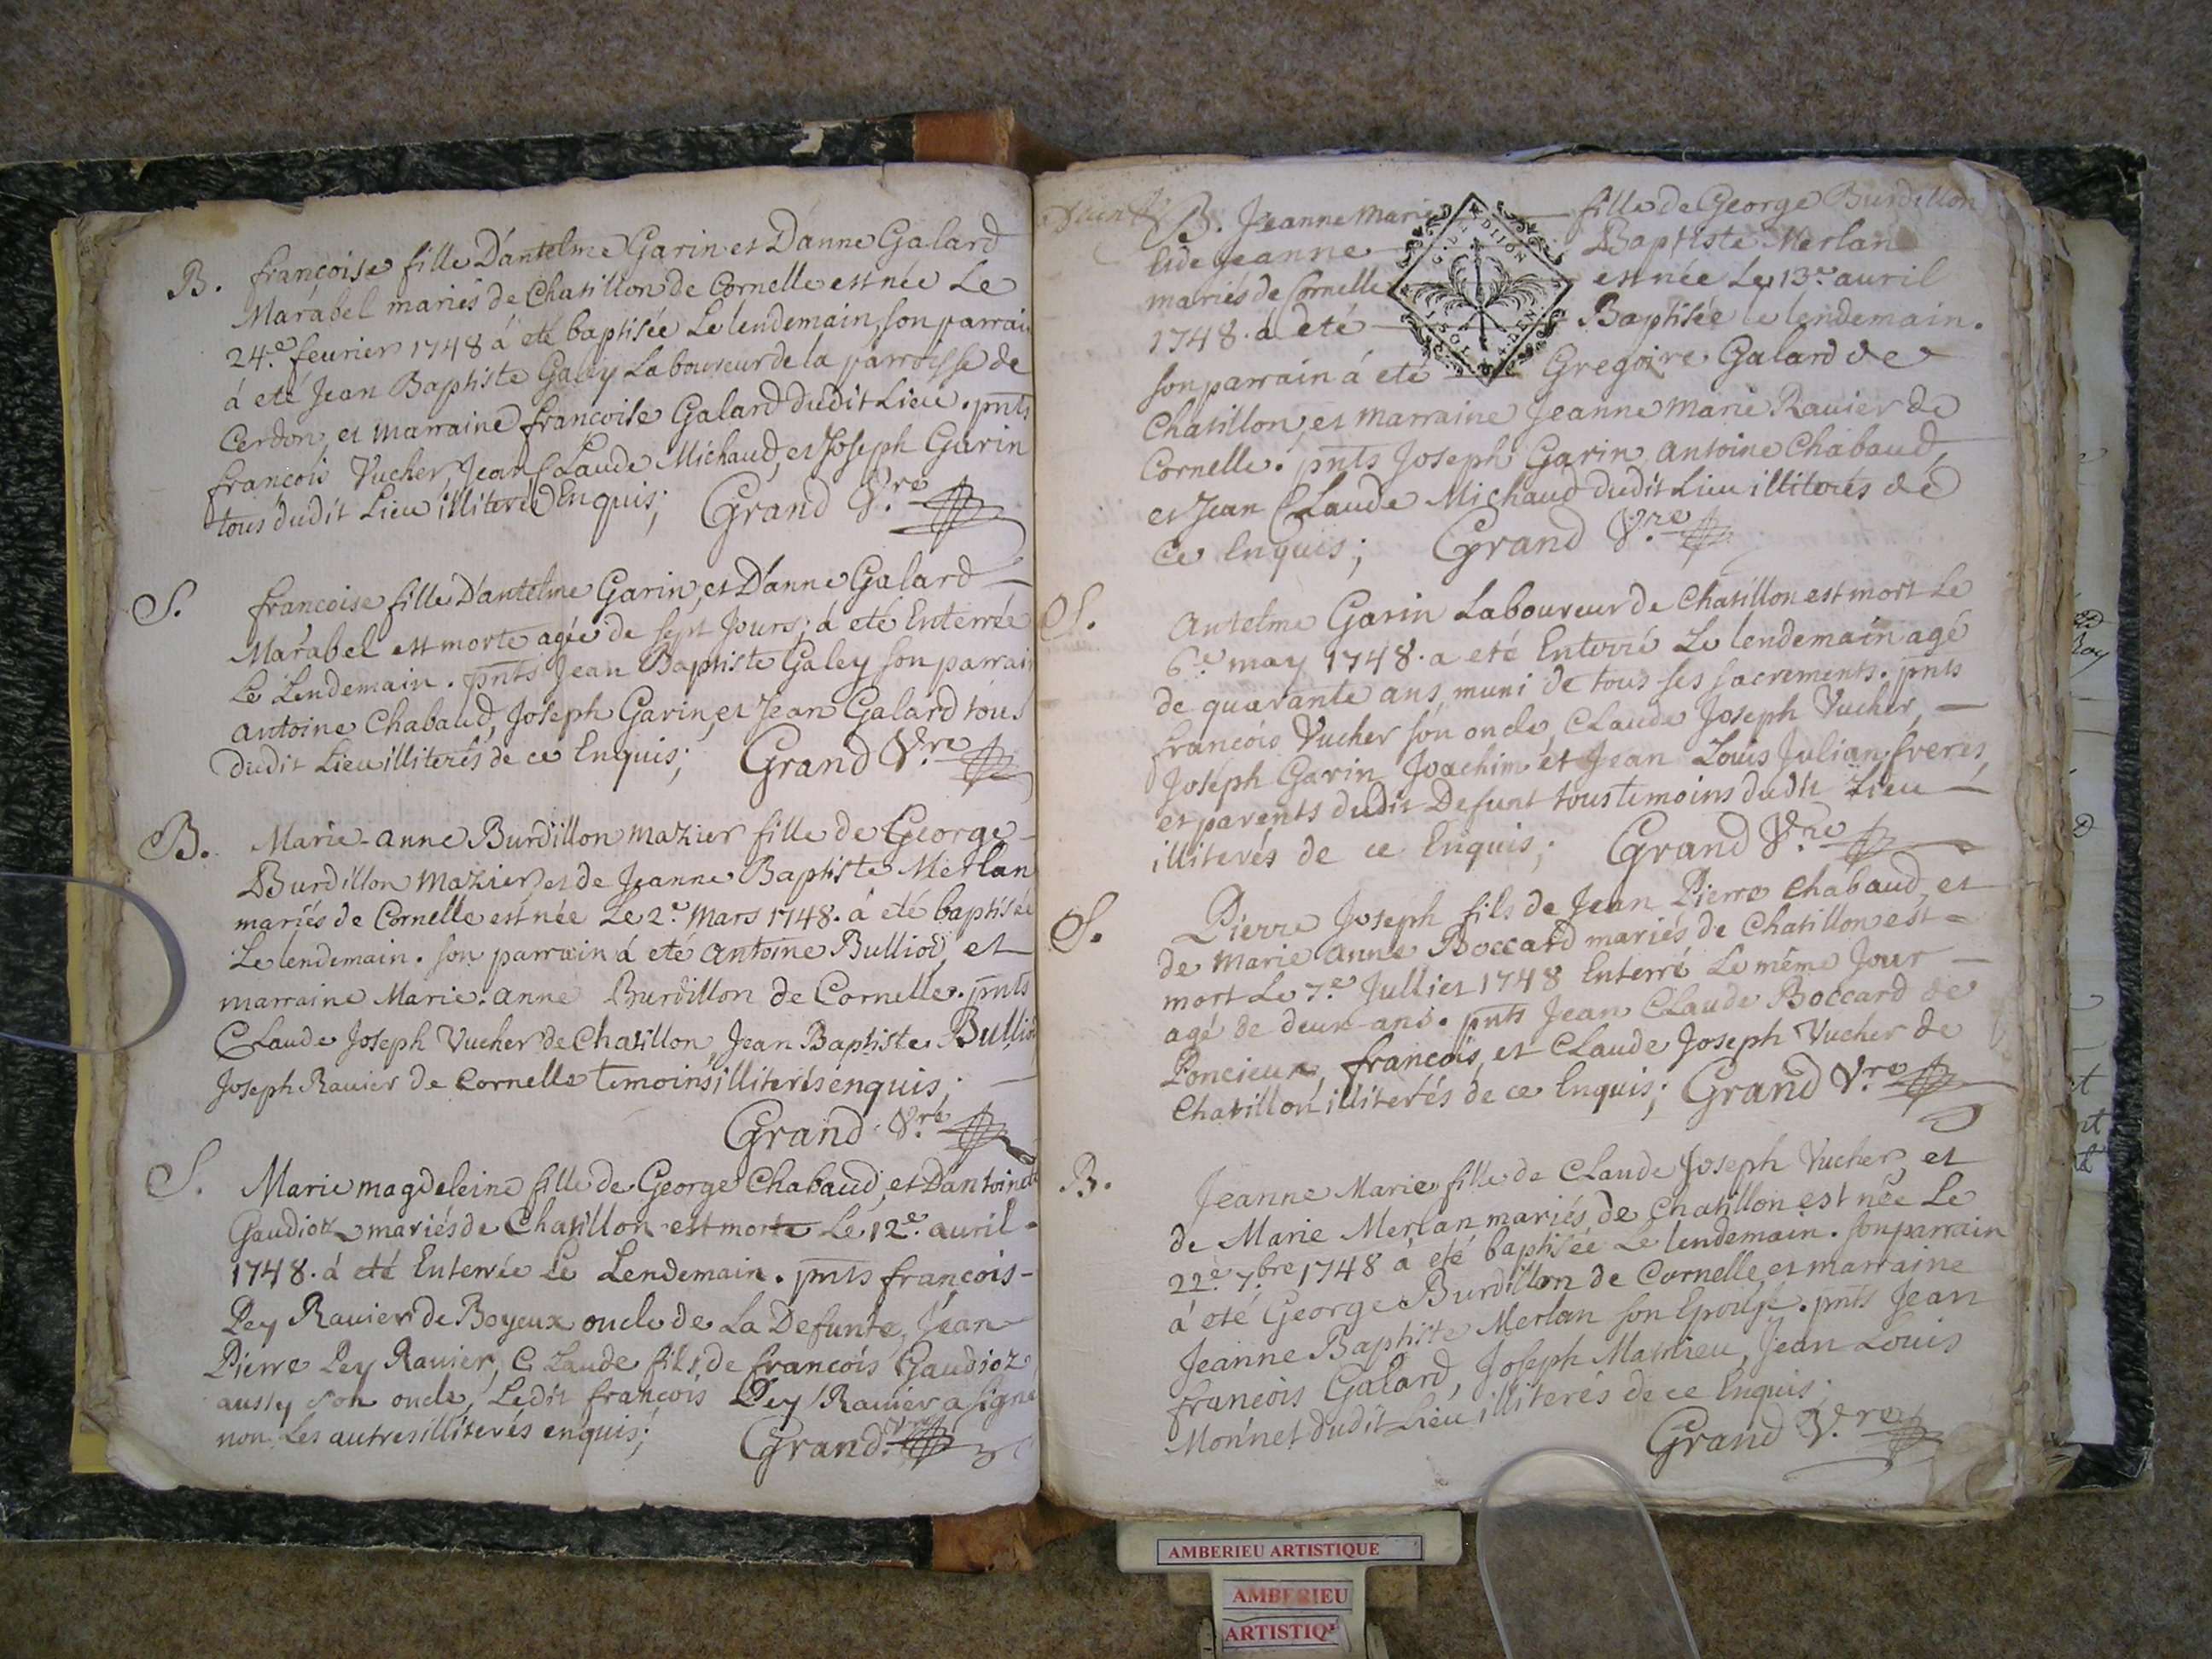 B. françoise fille D'antelme Garin et D'anne Galard
Marabel mariés de Chatillon de Cornelle est née Le
24.e feurier 1748 á eté baptisée Le lendemain, son parrain
á eté Jean Baptiste Galey Laboureur de la parroisse de
Cerdon, et marraine francoise Galard dudit Lieu. pnts
francois Vucher, Jean CLaude Michaud, et Joseph Garin
tous dudit Lieu illiterés Enquis; Grand V.re
S. francoise fille D'antelme Garin, et D'anne Galard
Marabel est morte agée de sept Jours; á eté Enterrée
Le Lendemain. pnts Jean Baptiste Galey son parrain
antoine Chabaud, Joseph Garin, et Jean Galard tous
dudit Lieu illiterés de ce Enquis; Grand V.re
B. Marie-anne Burdillon mazier fille de George
Burdillon Mazier, et de Jeanne Baptiste Merlan
mariés de Cornelle est née Le 2.e Mars 1748. á eté baptisée
Le lendemain. son parrain á eté antoine Bulliod, et
marraine Marie-anne Burdillon de Cornelle. pnts
CLaude Joseph Vucher de Chatillon, Jean Baptiste Bulliod
Joseph Rauier de Cornelle temoins illiterés enquis;
Grand V.re
S. Marie magdeleine fille de George Chabaud, et D'antoinette
Gaudioz mariés de Chatillon est morte Le 12.e auril
1748. á eté Enterrée Le Lendemain. pnts françois
Pey Rauier de Boyeux oncle de La Defunte, Jean
Pierre Pey Rauier, CLaude fils de francois Gaudioz
aussy son oncle, Ledit francois Pey Rauier a signé
non Les autres illiterés enquis; Grand V.re
B. Jeanne Marie fille de George Burdillon
et de Jeanne Baptiste Merlan
mariés de Cornelle est née Le 13.e auril
1748. á eté Baptisée le lendemain.
son parrain á eté Gregoire Galard de
Chatillon, et marraine Jeanne marie Rauier de
Cornelle. pnts Joseph Garin, antoine Chabaud,
et Jean CLaude Michaud dudit Lieu illiterés de
ce Enquis; Grand V.re
S. Antelme Garin Laboureur de Chatillon est mort Le
6.e may 1748. a eté Enterré Le lendemain agé
de quarante ans, muni de tous ses sacrements. pnts
francois Vucher son oncle, CLaude Joseph Vucher,
Joseph Garin, Joachim et Jean Louis Julian freres,
et parents dudit Defunt tous temoins dudit Lieu
illiterés de ce Enquis; Grand V.re
S. Pierre Joseph fils de Jean Pierre Chabaud, et
de Marie anne Boccard mariés de Chatillon est
mort Le 7.e Jullier 1748 Enterré Le même Jour
agé de deux ans. pnts Jean CLaude Boccard de
Poncieux, francois, et CLaude Joseph Vucher de
Chatillon illiterés de ce Enquis; Grand V.re
B. Jeanne Marie fille de CLaude Joseph Vucher, et
de Marie Merlan mariés de Chatillon est née Le
22.e 7.bre 1748 á eté baptisée Le lendemain. son parrain
á eté George Burdillon de Cornelle, et marraine
Jeanne Baptiste Merlan son Epouse. pnts Jean
francois Galard, Joseph Mathieu, Jean Louis
Monnet dudit Lieu illiterés de ce Enquis;
Grand V.re
AMBERIEU ARTISTIQUE
AMBERIEU
ARTISTIQ